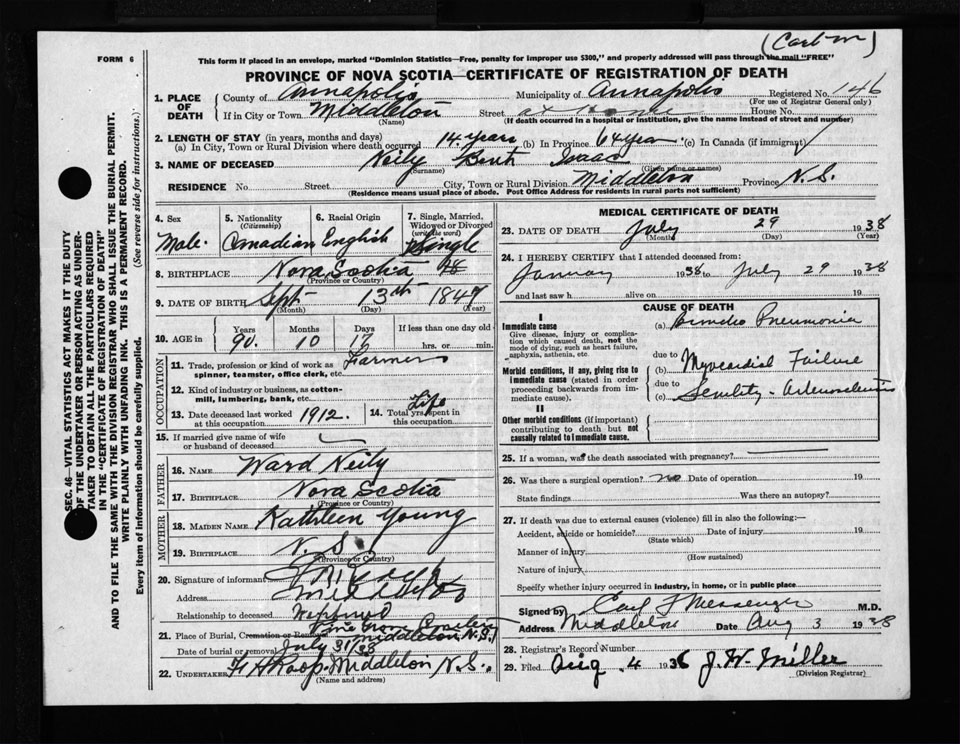 (Carleton)
FORM 6
This form if placed in an envelope, marked "Dominion Statistics—Free, penalty for improper use $300," and properly addressed will pass through the mail "FREE"
PROVINCE OF NOVA SCOTIA—CERTIFICATE OF REGISTRATION OF DEATH
1. PLACE OF DEATH County of Annapolis Municipality of Annapolis Registered No. 146
(For use of Registrar General only)
If in City or Town Middleton Street at Home House No.
(Name) (If death occurred in a hospital or institution, give the name instead of street and number)
2. LENGTH OF STAY (in years, months and days)
(a) In City, Town or Rural Division where death occurred 14 years (b) In Province 64 year (c) In Canada (if immigrant)
3. NAME OF DECEASED Neily Bent Isaac
(Surname) (Given name or names)
RESIDENCE No. Street City, Town or Rural Division Middleton Province N.S.
(Residence means usual place of abode. Post Office Address for residents in rural parts not sufficient)
SEC. 46—VITAL STATISTICS ACT MAKES IT THE DUTY
OF THE UNDERTAKER OR PERSON ACTING AS UNDER-
TAKER TO OBTAIN ALL THE PARTICULARS REQUIRED
IN THE "CERTIFICATE OF REGISTRATION OF DEATH"
AND TO FILE THE SAME WITH THE DIVISION REGISTRAR WHO SHALL ISSUE THE BURIAL PERMIT.
WRITE PLAINLY WITH UNFADING INK. THIS IS A PERMANENT RECORD.
Every item of information should be carefully supplied. (See reverse side for instructions.)
4. Sex Male.
5. Nationality (Citizenship) Canadian
6. Racial Origin English
7. Single, Married, Widowed or Divorced (write the word) Single
8. BIRTHPLACE Nova Scotia
(Province or Country)
9. DATE OF BIRTH Sept 13th 1847
(Month) (Day) (Year)
10. AGE in Years 90. Months 10 Days If less than one day old hrs. or min.
OCCUPATION
11. Trade, profession or kind of work as spinner, teamster, office clerk, etc. Farmer
12. Kind of industry or business, as cotton-mill, lumbering, bank, etc.
13. Date deceased last worked at this occupation 1912.
14. Total yrs. spent in this occupation Life
15. If married give name of wife or husband of deceased
FATHER
16. NAME Ward Neily
17. BIRTHPLACE Nova Scotia
(Province or Country)
MOTHER
18. MAIDEN NAME Kathleen Young
19. BIRTHPLACE N.S.
(Province or Country)
20. Signature of informant
Address Middleton
Relationship to deceased
21. Place of Burial, Cremation or Removal Pine Grove Middleton N.S.
Date of burial or removal July 31/38
22. UNDERTAKER Middleton N.S.
(Name and address)
MEDICAL CERTIFICATE OF DEATH
23. DATE OF DEATH July 29 1938
(Month) (Day) (Year)
24. I HEREBY CERTIFY that I attended deceased from:
January 1938 to July 29 1938
and last saw h alive on 19
CAUSE OF DEATH
I
Immediate cause
Give disease, injury or complication which caused death, not the mode of dying, such as heart failure, asphyxia, asthenia, etc
(a) Broncho Pneumonia
due to
Morbid conditions, if any, giving rise to immediate cause (stated in order proceeding backwards from immediate cause).
(b) Myocardial Failure
due to
(c) Senility - Arteriosclerosis
II
Other morbid conditions (if important) contributing to death but not causally related to immediate cause.
25. If a woman, was the death associated with pregnancy?
26. Was there a surgical operation? no Date of operation 19
State findings Was there an autopsy?
27. If death was due to external causes (violence) fill in also the following:—
Accident, suicide or homicide? Date of injury 19
(State which)
Manner of injury
(How sustained)
Nature of injury
Specify whether injury occurred in industry, in home, or in public place
Signed by Earl Messenger M.D.
Address Middleton Date Aug 3 1938
28. Registrar's Record Number
29. Filed Aug. 4 1938 J. W. Miller
(Division Registrar)